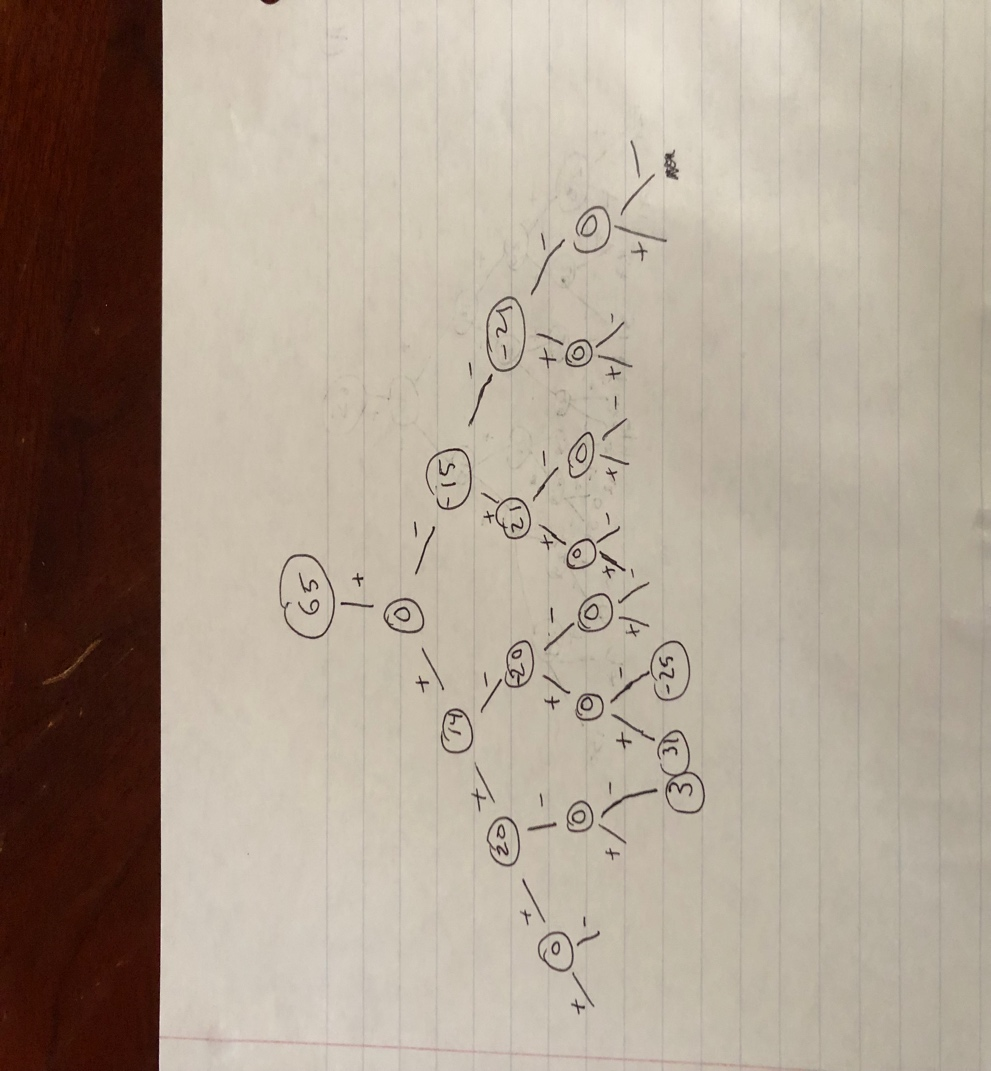 65
+
0
+ -
14 -15
+ - + -
20 -20 21 -21
+ - + - + - + -
0 0 0 0 0 0 0 0
+ - + - + - + - + - + - + - + -
3 31 -25